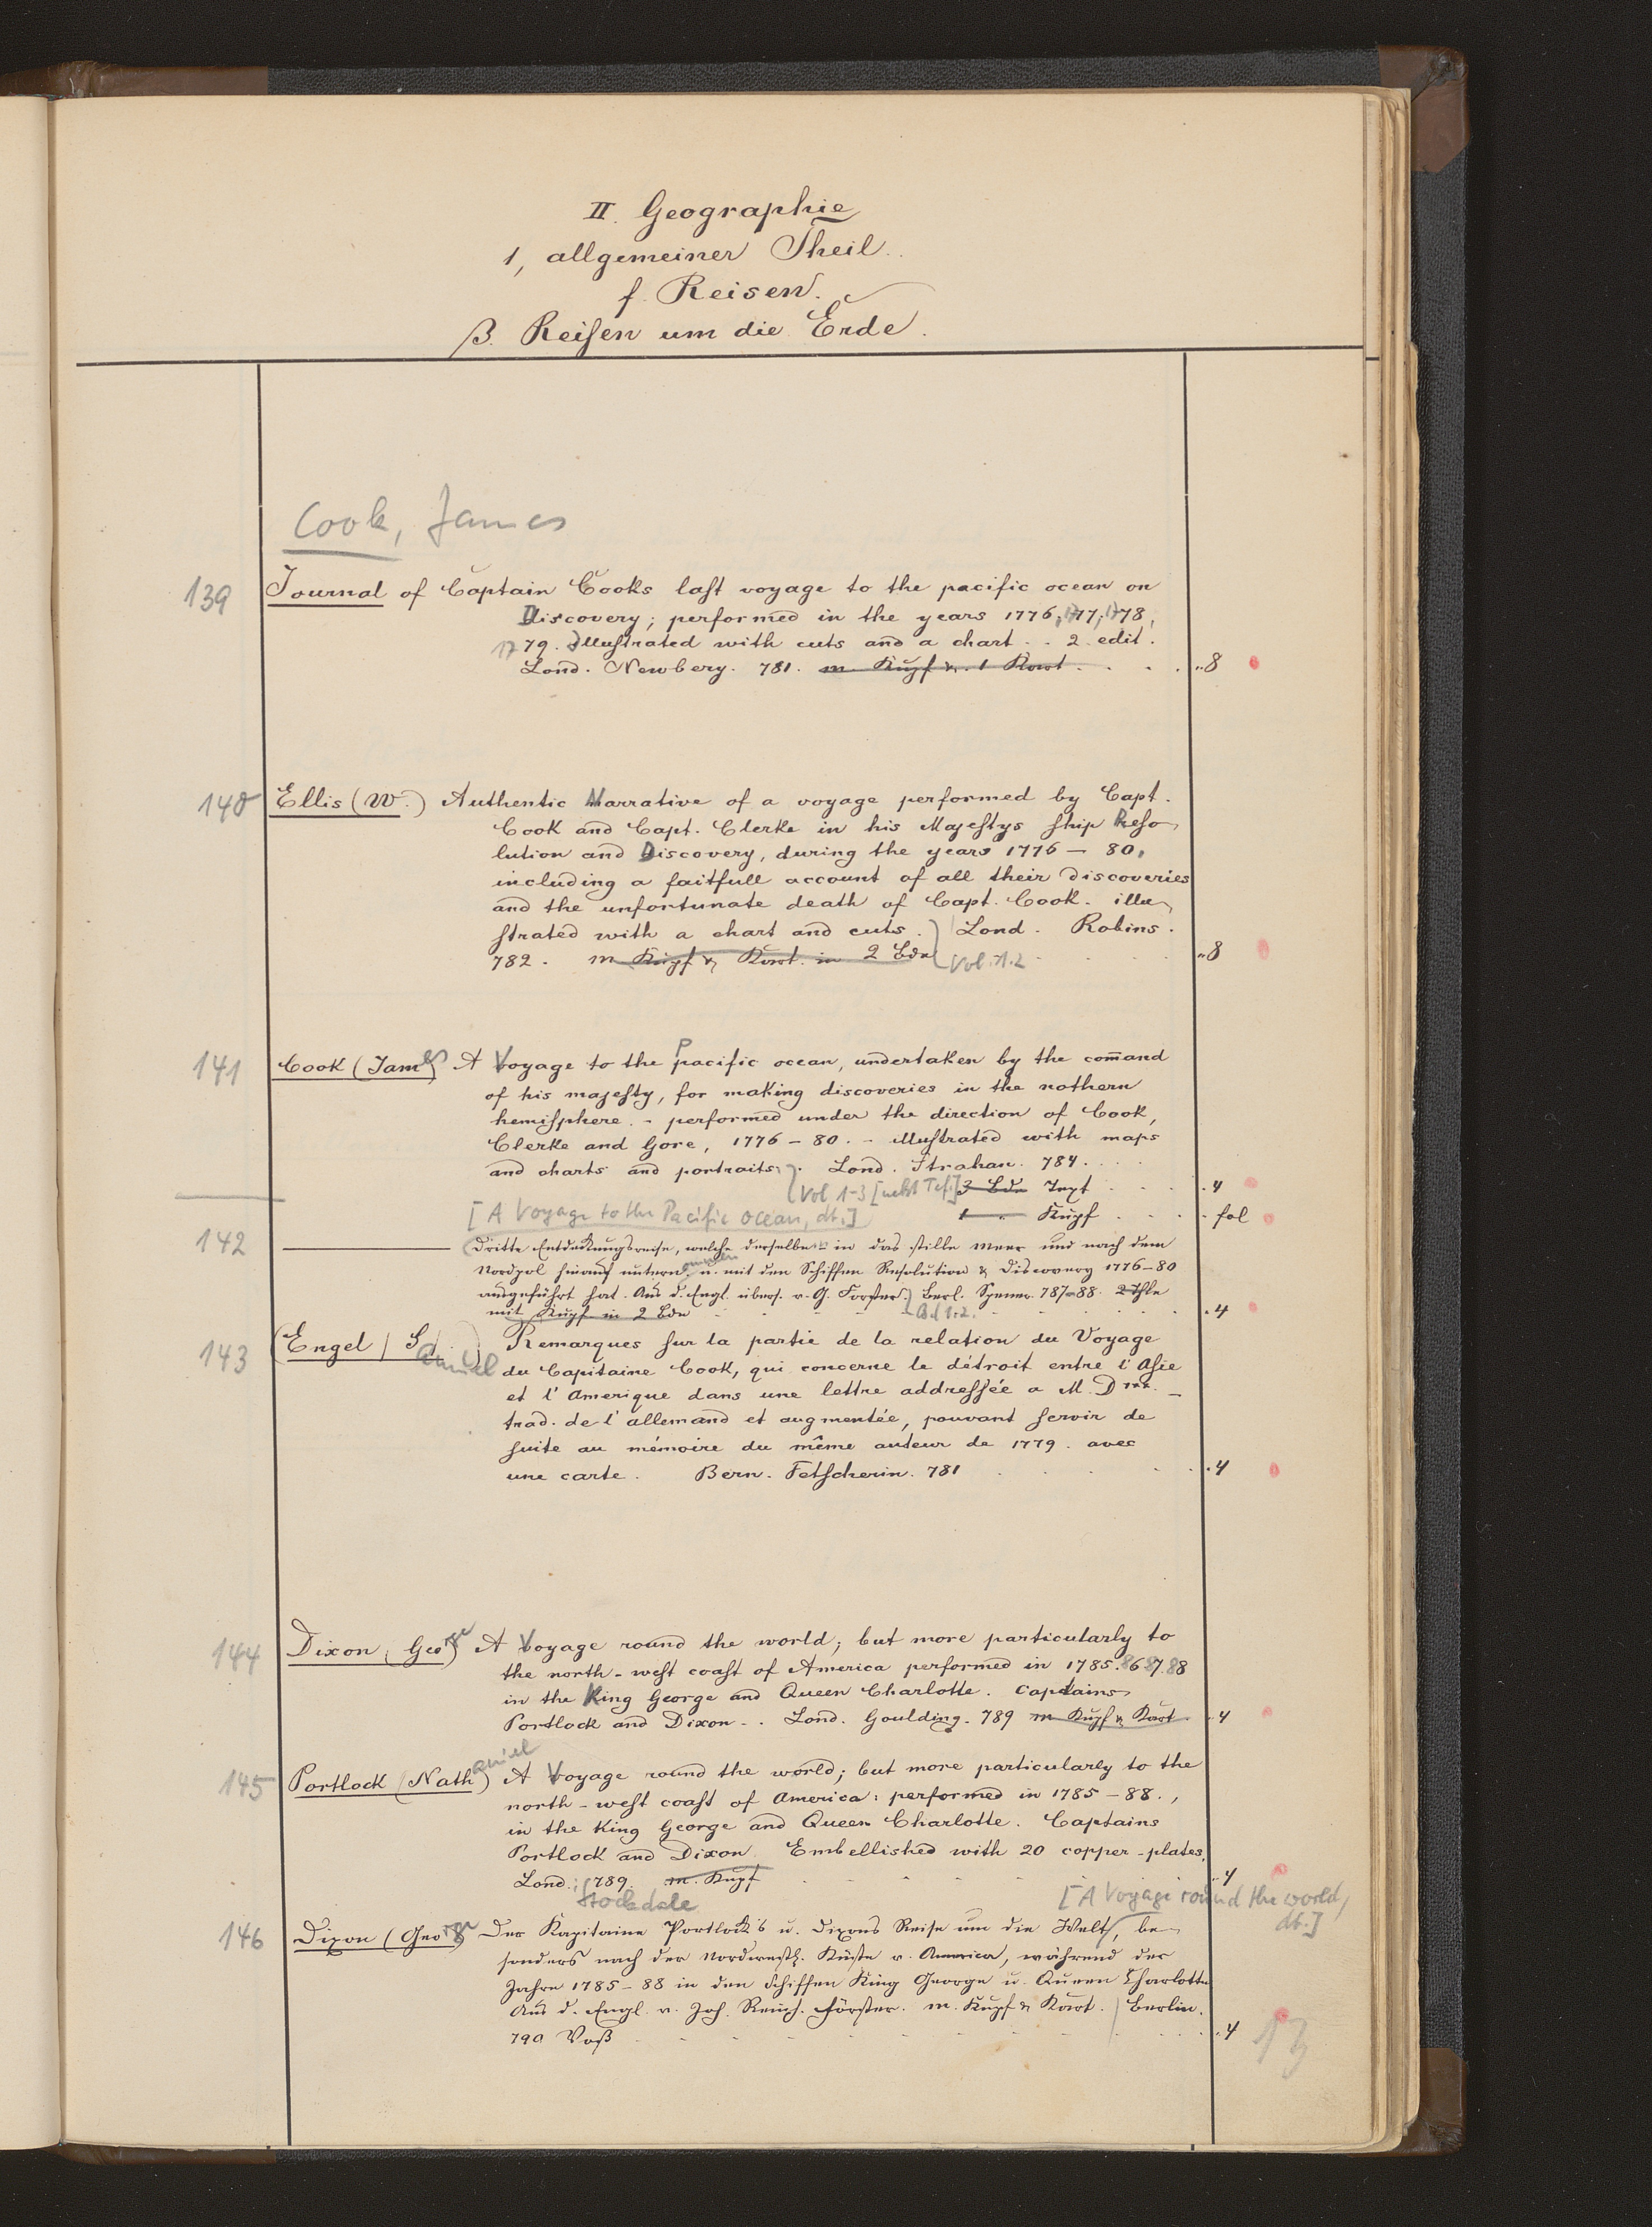 II. Geographie
1, allgemeiner Theil.
f. Reisen.
β. Reisen um die Erde.
Cook, James
139 Journal of Captain Cooks last voyage to the pacific ocean on
Discovery; performed in the years 1776, 177, 1778,
1779. Illustrated with cuts and a chart. - 2 edit.
Lond. Newbery. 781. m Kupf u. 1 Kart. ..8
140 Ellis (W.) Authentic Narrative of a voyage performed by Capt.
Cook and Capt. Clerke in his Majestys ship Reso-
lution and Discovery, during the years 1776 – 80,
including a faitfull account of all their discoveries
and the unfortunate death of Capt. Cook. illu-
strated with a chart and cuts. Lond. Robins.
782. m Kupf u Kart. in 2 Bdn Vol. 1.2 ..8
141 Cook (James) A Voyage to the Pacific ocean, undertaken by the com̄and
of his majesty, for making discoveries in the nothern
hemisphere. - performed under the direction of Cook,
Clerke and Gore, 1776 – 80. - illustrated with maps
and charts and portraits. Lond. Strahan. 784.
Vol 1-3 [nebst Taf.] 3 Bde Text .4
[A Voyage to the Pacific Ocean, dt.] 1 " Kupf . fol
142 ——— Dritte Entdeckungsreise, welche derselbe in das stille Meer und nach dem
Nordpol hinauf unternommen u. mit den Schiffen Resolution & Discovery 1776–80
ausgeführt hat. Aus d. Engl. übers. v. G. Forster. Berl. Spener. 787-88. 2 Thle
mit Kupf in 2 Bdn Bd 1.2. .4
143 (Engel / Samuel) Remarques sur la partie de la relation du Voyage
du Capitaine Cook, qui concerne le détroit entre l'Asie
et l'Amerique dans une lettre addressée a M. D***. –
trad. de l'allemand et augmentée, pouvant servir de
suite au mémoire du même auteur de 1779. avec
une carte. Bern. Fetscherin. 781 .4
144 Dixon, (George) A Voyage round the world; but more particularly to
the north-west coast of America performed in 1785.86 87.88
in the King George and Queen Charlotte. Captains
Portlock and Dixon -. Lond. Goulding. 789 m Kupf & Kart. .4
145 Portlock (Nathaniel) A Voyage round the world; but more particularly to the
north-west coast of America: performed in 1785–88.,
in the King George and Queen Charlotte. Captains
Portlock and Dixon. Embellished with 20 copper-plates.
Lond.: 789. m. Kupf ..4
Stockdale [A Voyage round the world,
dt.]
146 Dixon (George) Der Kapitaine Portlock's u. Dixons Reise um die Welt, be-
sonders nach der Nordwestl. Küste v. America, während der
Jahre 1785–88 in den Schiffen King George u. Queen Charlotte
Aus d. Engl. v. Joh. Reinh. Förster. m. Kupf & Kart. Berlin.
790 Voß .4
13